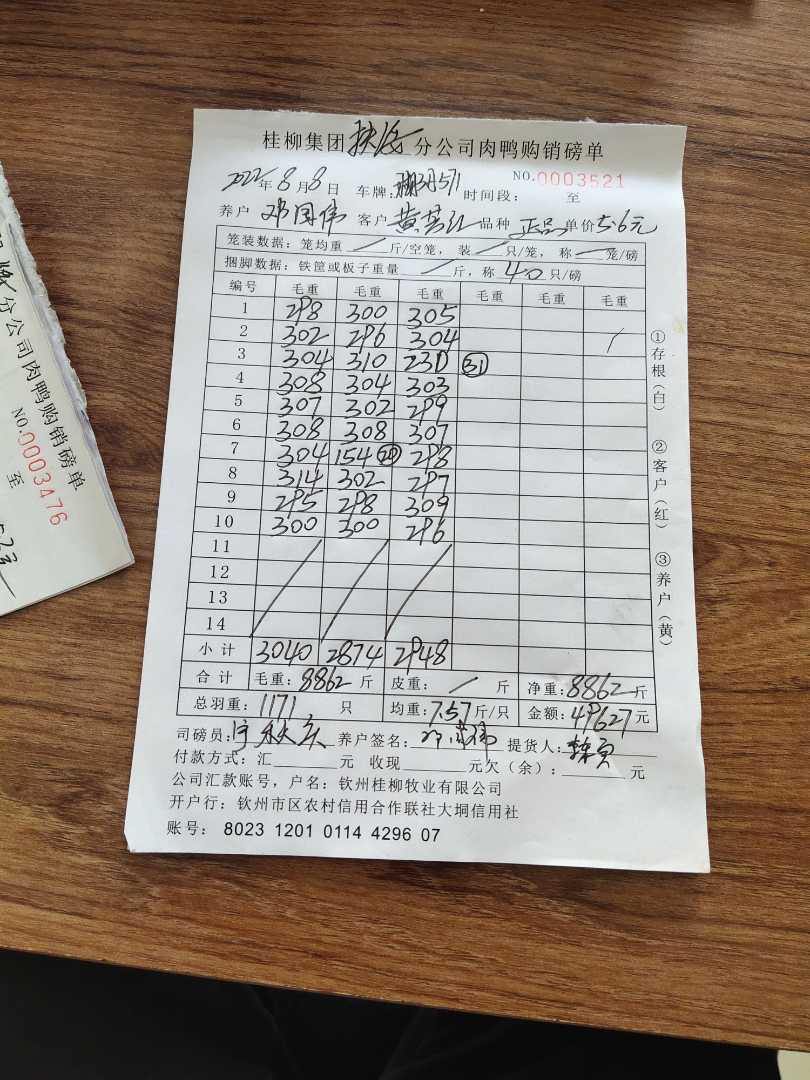 桂柳集团 分公司肉鸭购销磅单
NO.0003521
2022年8月8日 车牌: 571 时间段: 至
养户 邓国伟 客户 黄 品种 正品 单价5.6元
笼装数据: 笼均重 / 斤/空笼, 装 / 只/笼, 称 / 笼/磅
捆脚数据: 铁筐或板子重量 / 斤, 称 40 只/磅
编号 毛重 毛重 毛重 毛重 毛重 毛重
1 298 300 305
2 302 296 304 /
3 304 310 230 31
4 308 304 303
5 307 302 299
6 308 308 307
7 304 154 20 298
8 314 302 297
9 295 298 309
10 300 300 296
11
12
13
14
小计 3040 2874 2948
合计 毛重: 8862 斤 皮重: / 斤 净重: 8862 斤
总羽重: 1171 只 均重: 7.57 斤/只 金额: 49627 元
司磅员: 养户签名: 邓国伟 提货人:
付款方式: 汇 元 收现 元欠(余): 元
公司汇款账号, 户名: 钦州桂柳牧业有限公司
开户行: 钦州市区农村信用合作联社大垌信用社
账号: 8023 1201 0114 4296 07
①存根(白) ②客户(红) ③养户(黄)
分公司肉鸭购销磅单
NO.0003476
至